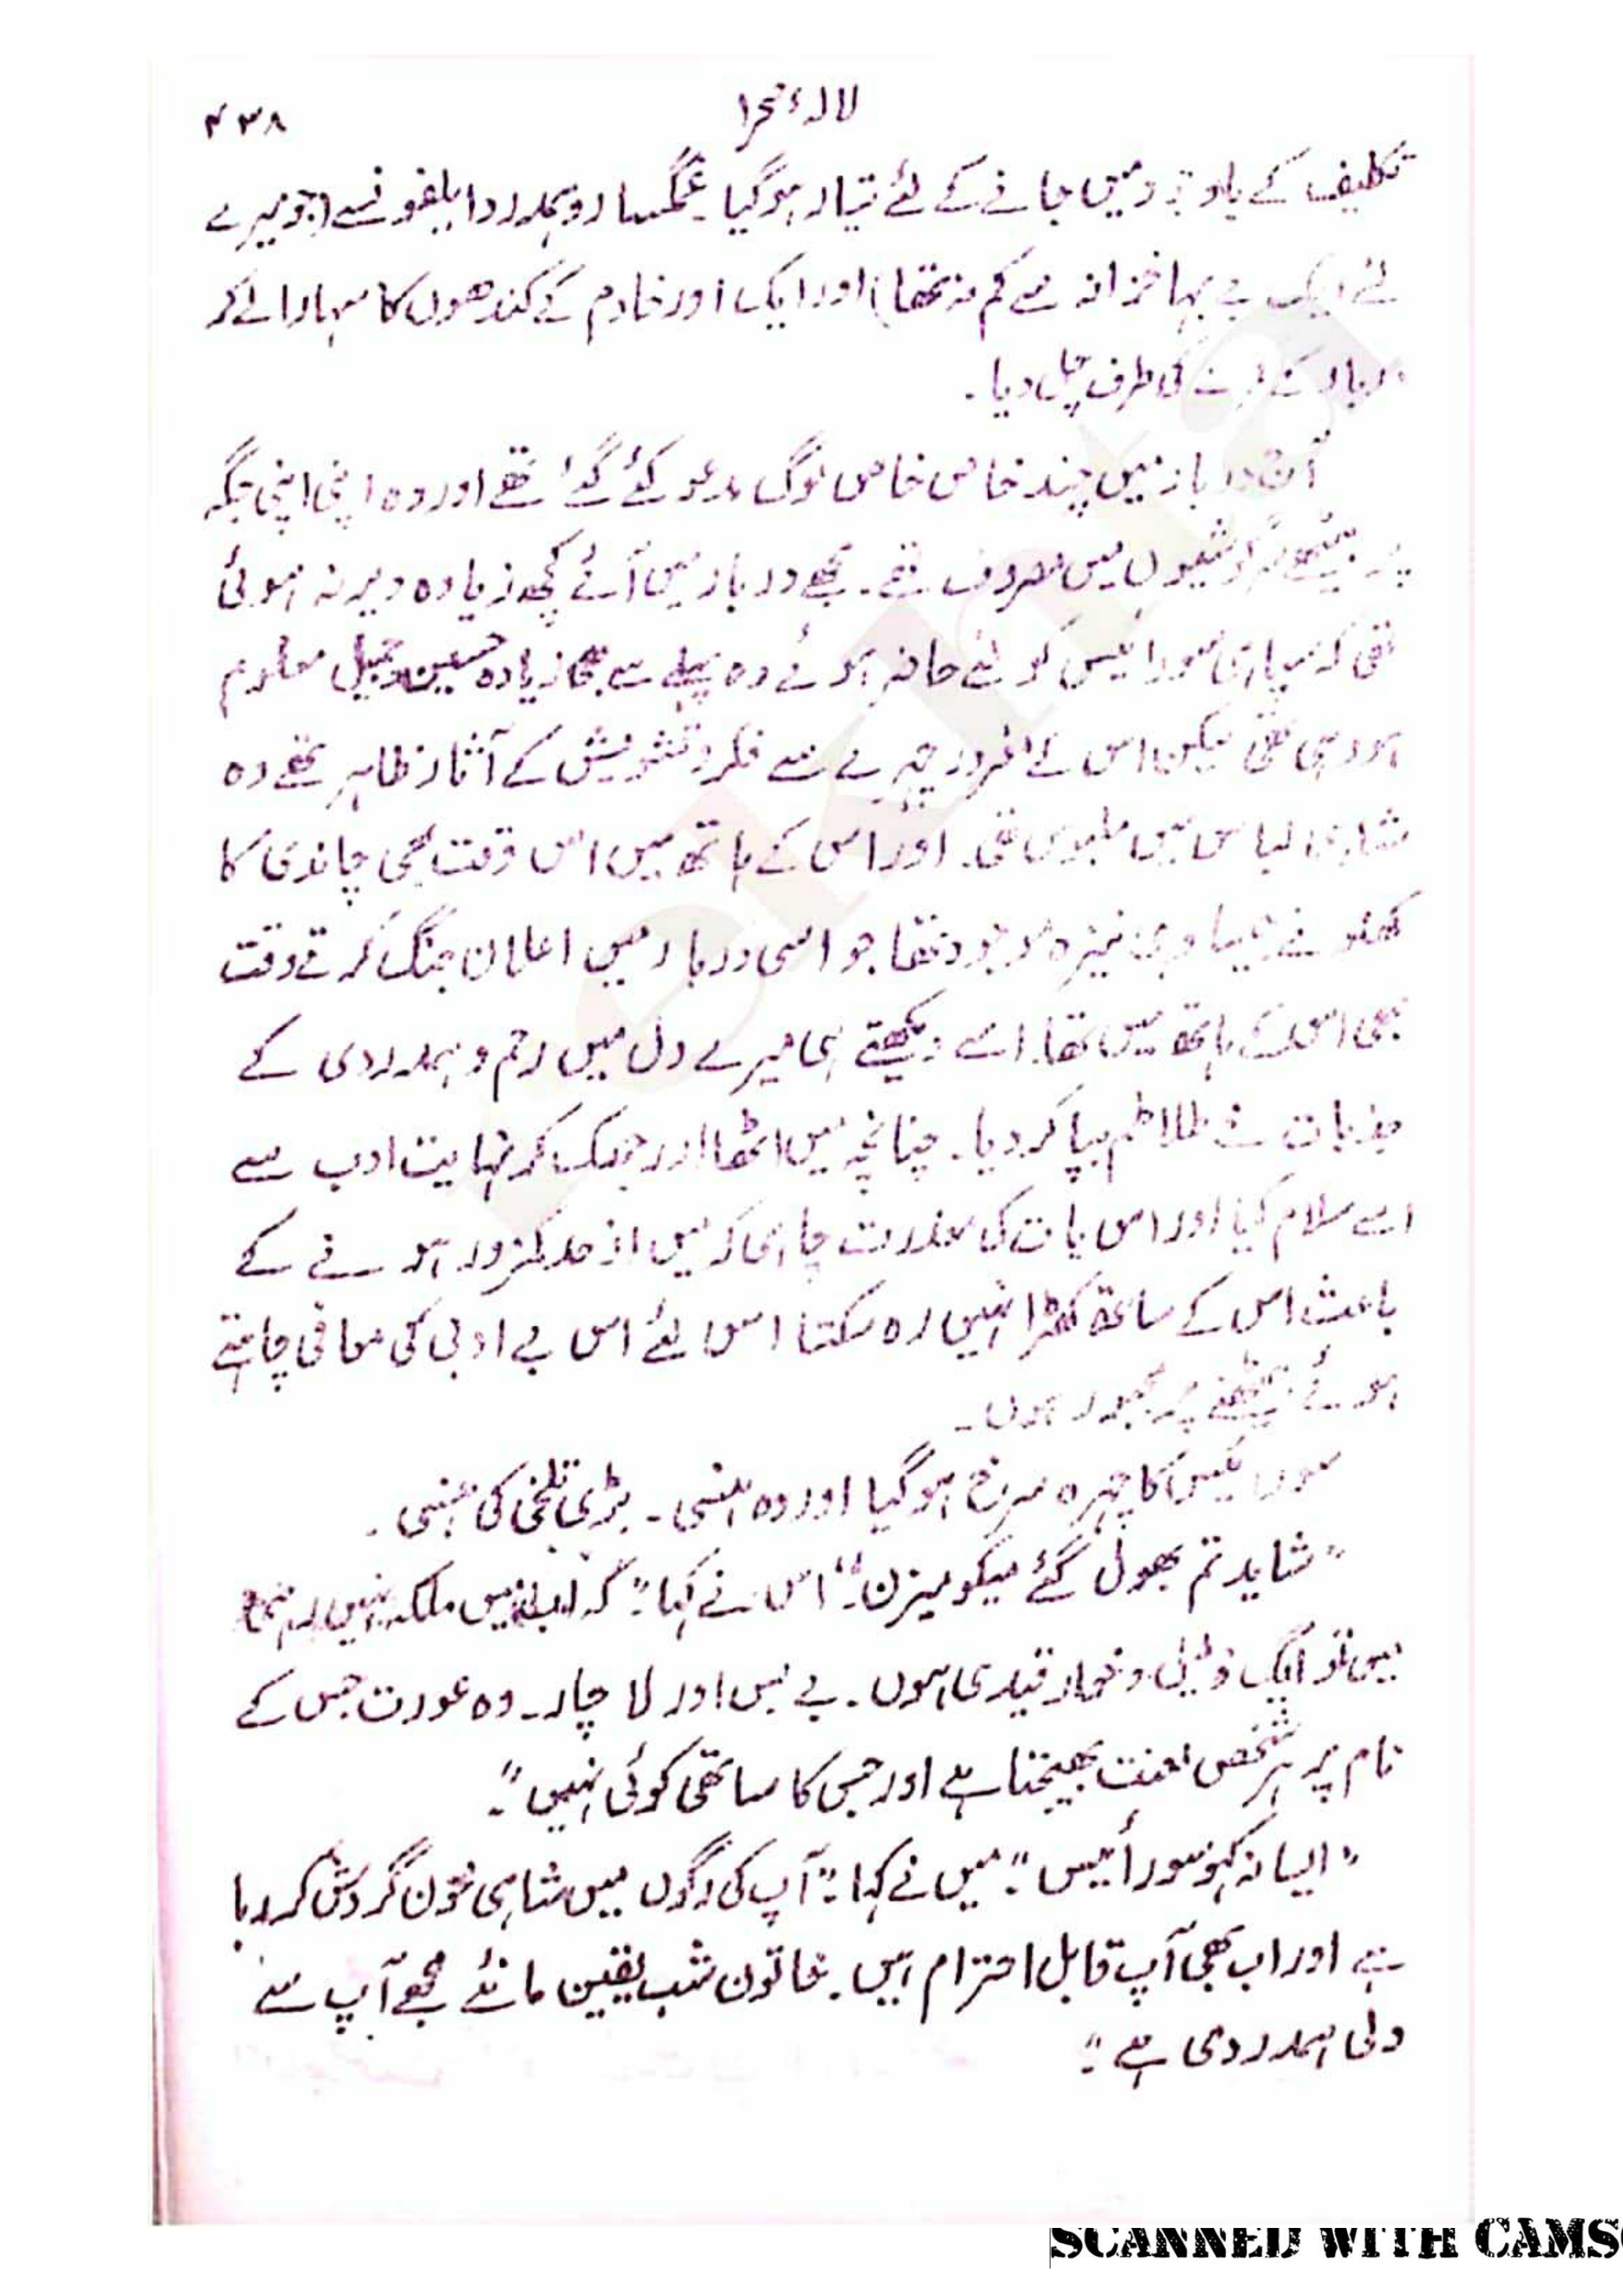 لالۂ صحرا
۴۳۸
تکلیف کے باوجود میں جانے کے لئے تیار ہوگیا۔ غمگسار و ہمدرد ابلغو نسے (جو میرے
لئے ایک بے بہا خزانہ سے کم نہ تھا) اور ایک اور خادم کے کندھوں کا سہارا لے کر
دربار کے کمرے کی طرف چل دیا۔
اس دربار میں چند خاص خاص لوگ مدعو کئے گئے تھے اور وہ اپنی اپنی جگہ
پر بیٹھے سرگوشیوں میں مصروف تھے۔ مجھے دربار میں آئے کچھ زیادہ دیر نہ ہوئی
تھی کہ سپاہی سورائیس کو لئے حاضر ہوئے وہ پہلے سے بھی زیادہ حسین و جمیل معلوم
ہو رہی تھی لیکن اس کے چہرے سے فکر و تشویش کے آثار ظاہر تھے وہ
شاہی لباس میں ملبوس تھی۔ اور اس کے ہاتھ میں اس وقت بھی چاندی کا
کھلونے جیسا وہی نیزہ موجود تھا جو اسی دربار میں اعلان جنگ کرتے وقت
بھی اس کے ہاتھ میں تھا۔ اسے دیکھتے ہی میرے دل میں رحم و ہمدردی کے
جذبات نے طلاطم بپا کر دیا۔ چنانچہ میں اٹھا اور جھک کر نہایت ادب سے
اسے سلام کیا اور اس بات کی معذرت چاہی کہ میں از حد کمزور ہونے کے
باعث اس کے ساتھ کھڑا نہیں رہ سکتا اس لئے اس بے ادبی کی معافی چاہتے
ہوئے بیٹھنے پر مجبور ہوں۔
سورائیس کا چہرہ سرخ ہوگیا اور وہ ہنسی۔ بڑی تلخی کی ہنسی۔
"شاید تم بھول گئے میکومیزن۔" اس نے کہا۔ "کہ اب میں ملکہ نہیں
میں تو ایک ذلیل و خوار قیدی ہوں۔ بے بس اور لاچار۔ وہ عورت جس کے
نام پر ہر شخص لعنت بھیجتا ہے اور جس کا ساتھی کوئی نہیں"۔
"ایسا نہ کہو سورائیس"۔ میں نے کہا۔ "آپ کی رگوں میں شاہی خون گردش کر رہا
ہے اور اب بھی آپ قابل احترام ہیں۔ خاتون شب یقین مانئے مجھے آپ سے
دلی ہمدردی ہے"۔
SCANNED WITH CAMS